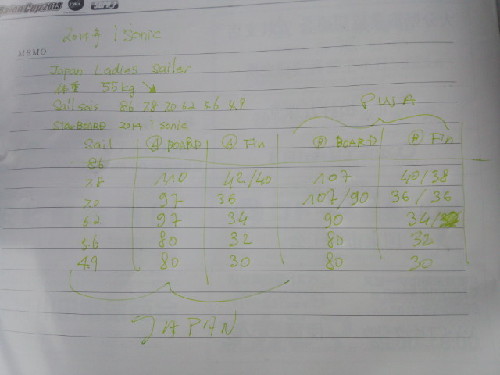 2014年 iSonic
MEMO
Japan Ladies Sailer
体重 55kg
Sail sais 86 78 70 62 56 49
PULA
StarBOARD 2014 iSonic
Sail Ⓐ BOARD Ⓐ Fin Ⓑ BOARD Ⓑ Fin
86
78 110 42/40 107 40/38
70 97 36 107/90 36/36
62 97 34 90 34/
56 80 32 80 32
49 80 30 80 30
JAPAN